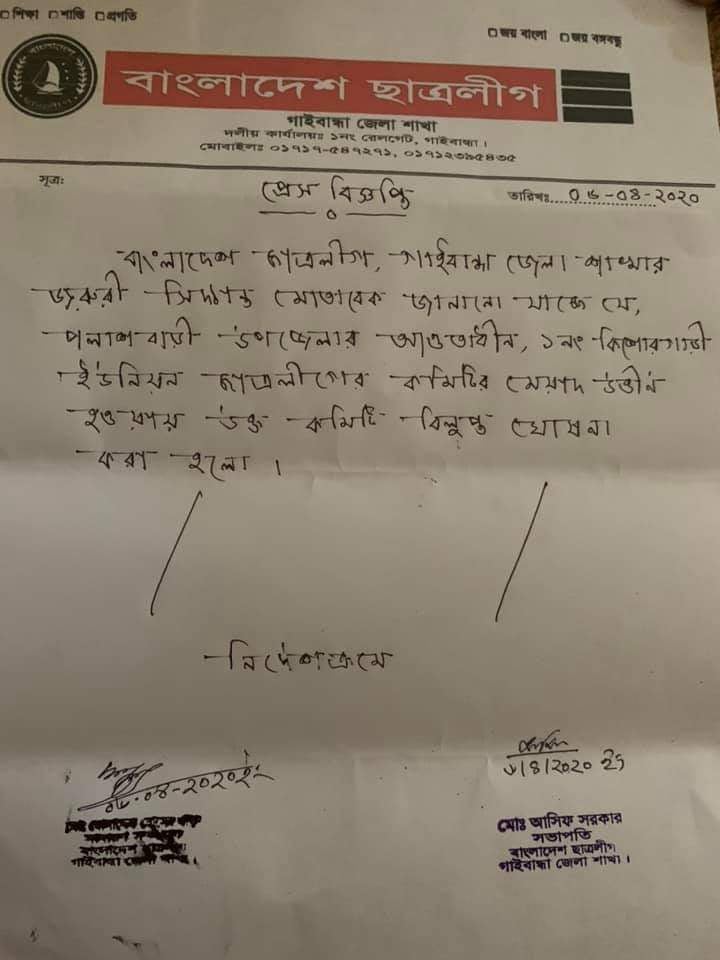 □ শিক্ষা □ শান্তি □ প্রগতি
□ জয় বাংলা □ জয় বঙ্গবন্ধু
বাংলাদেশ ছাত্রলীগ
গাইবান্ধা জেলা শাখা
দলীয় কার্যালয়ঃ ১নং রেলগেট, গাইবান্ধা।
মোবাইলঃ ০১৭১৭-৫৪৭২৭১, ০১৭১২৩৯৫৪৩৫
সূত্রঃ
প্রেস বিজ্ঞপ্তি
তারিখঃ ০৬-০৪-২০২০
বাংলাদেশ ছাত্রলীগ, গাইবান্ধা জেলা শাখার
জরুরী সিদ্ধান্ত মোতাবেক জানানো যাচ্ছে যে,
পলাশবাড়ী উপজেলার আওতাধীন, ১নং কিশোরগাড়ী
ইউনিয়ন ছাত্রলীগের কমিটির মেয়াদ উত্তীর্ন
হওয়ায় উক্ত কমিটি বিলুপ্ত ঘোষনা
করা হলো।
নির্দেশক্রমে
০৬-০৪-২০২০ইং
৬/৪/২০২০ ইং
বাংলাদেশ ছাত্রলীগ
গাইবান্ধা জেলা শাখা।
মোঃ আসিফ সরকার
সভাপতি
বাংলাদেশ ছাত্রলীগ
গাইবান্ধা জেলা শাখা।